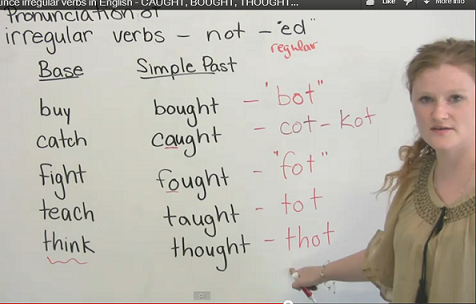 unce irregular verbs in English - CAUGHT, BOUGHT, THOUGHT...
Like
More info
Pronunciation of
irregular verbs - not - "ed"
regular
Base Simple Past
buy bought - "bot"
catch caught - cot - kot
fight fought - "fot"
teach taught - tot
think thought - thot